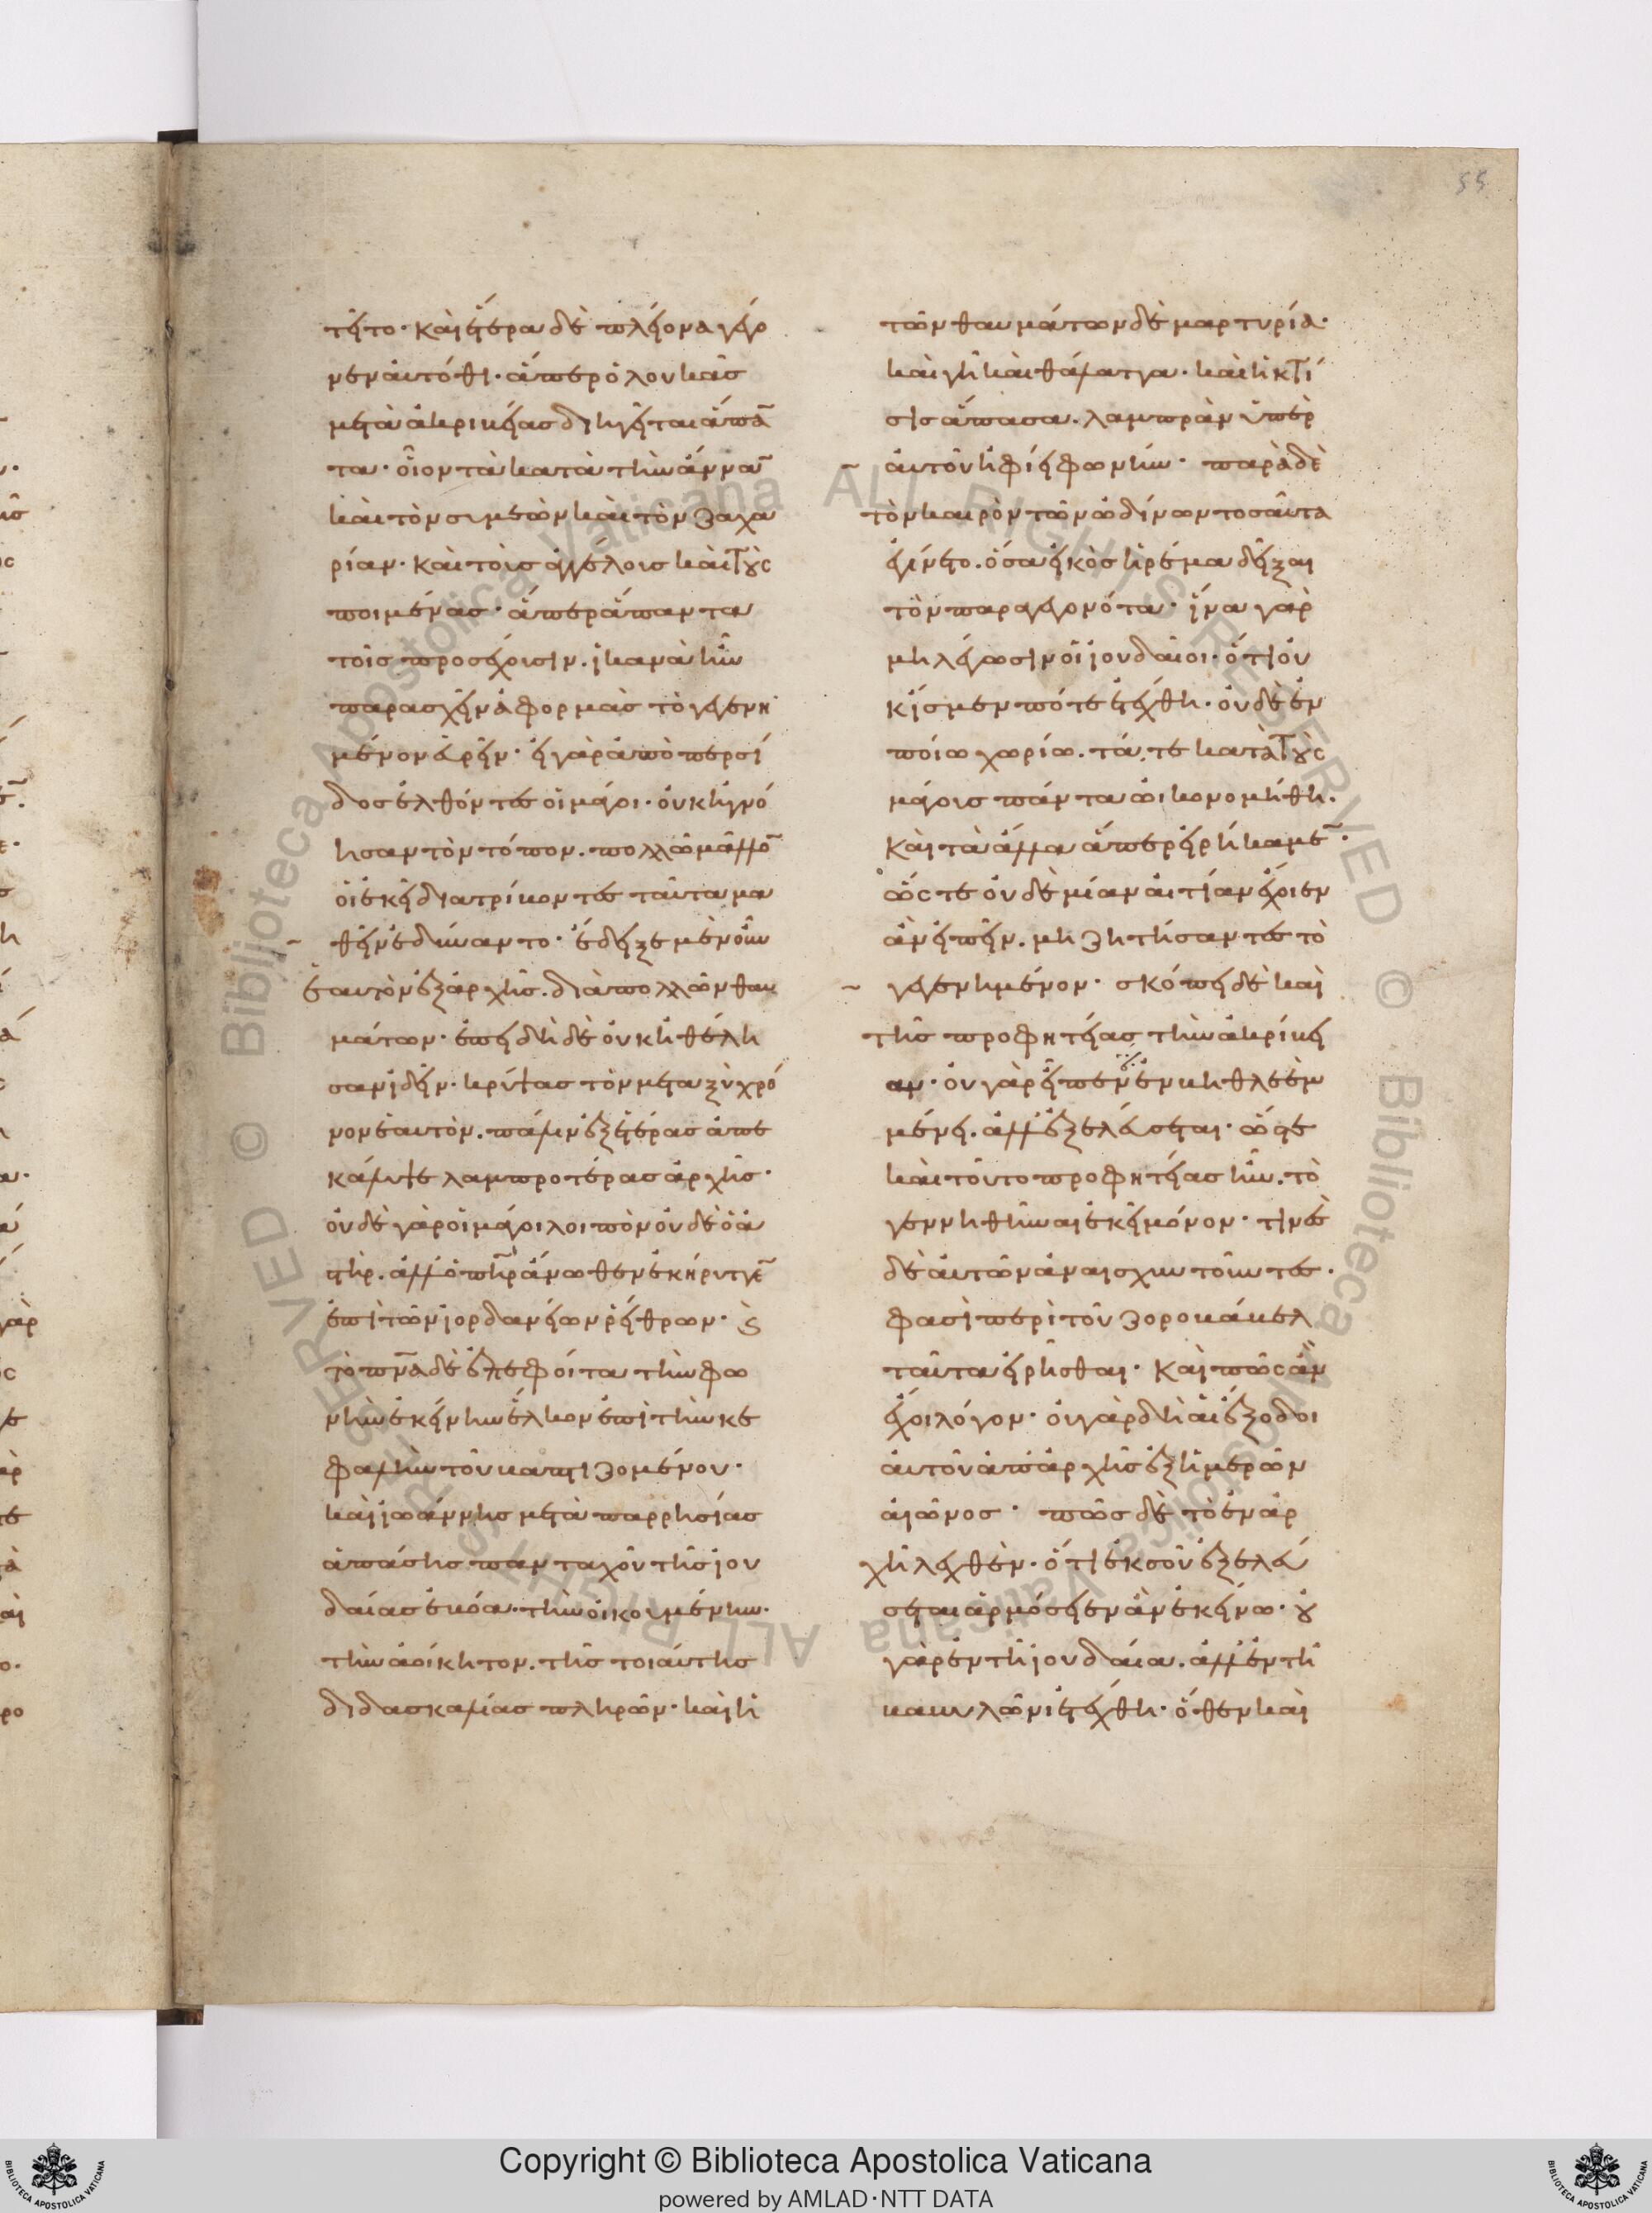 55
τεῖτο· καὶ ἕτερα δὲ πλείονα γέγο
νεν αὐτόθι· ἅπερ ὁ λουκᾶς
μετὰ ἀκριβείας διηγεῖται ἅπαν
τα· οἷον τὰ κατὰ τὴν ἄνναν
καὶ τὸν συμεὼν καὶ τὸν ζαχα
ρίαν· καὶ τοὺς ἀγγέλους καὶ τοὺς
ποιμένας· ἅπερ ἅπαντα
τοῖς προσέχουσιν. ἱκανὰ ἦν
παρασχεῖν ἀφορμὰς τὸ γεγενη
μένον εὑρεῖν· εἰ γὰρ ἀπὸ περσί
δος ἐλθόντες οἱ μάγοι· οὐκ ἠγνό
ησαν τὸν τόπον. πολλῶ μᾶλλον
οἱ ἐκεῖ διατρίβοντες ταῦτα μα
θεῖν ἐδύναντο· ἔδειξε μὲν οὖν
ἑαυτὸν ἐξ ἀρχῆς. διὰ πολλῶν θαυ
μάτων· ἐπειδὴ δὲ οὐκ ἠθέλη
σαν ἰδεῖν· κρύψας τὸν μεταξὺ χρό
νον ἑαυτὸν. πάλιν ἐξ ἑτέρας ἀπε
κάλυψε λαμπροτέρας ἀρχῆς·
οὐδὲ γὰρ οἱ μάγοι λοιπὸν οὐδὲ ὁ ἀ
στὴρ. ἀλλ' ὁ πὴρ ἄνωθεν ἐκήρυττεν
ἐπὶ τῶν ἰορδανείων ῥείθρων· καὶ
τὸ πνα δὲ ἐπεφοίτα τὴν φω
νὴν ἐκείνην ἕλκον ἐπὶ τὴν κε
φαλὴν τοῦ βαπτιζομένου·
καὶ ἰωάννης μετὰ παρρησίας
ἁπάσης πανταχοῦ τῆς ἰου
δαίας ἐβόα. τὴν οἰκουμένην·
τὴν ἀοίκητον. τῆς τοιαύτης
διδασκαλίας πληρῶν· καὶ ἡ
τῶν θαυμάτων δὲ μαρτυρία·
καὶ γῆ καὶ θάλαττα· καὶ ἡ κτί
σις ἅπασα. λαμπρὰν ὑπὲρ
αὐτοῦ ἠφίει φωνήν· παρὰ δὲ
τὸν καιρὸν τῶν ὠδίνων τοσαῦτα
ἐγίνετο. ὅσα εἰκὸς ἠρέμα δεῖξαι
τὸν παραγεγονότα· ἵνα γὰρ
μὴ λέγωσιν οἱ ἰουδαῖοι· ὅτι οὐ
κ ἴσμεν πότε ἐτέχθη· οὐδὲ ἐν
ποίω χωρίω. τά, τε κατὰ τοὺς
μάγους πάντα ὠικονομήθη.
καὶ τὰ ἄλλα ἅπερ εἰρήκαμεν·
ὥς τε οὐδὲ μίαν αἰτίαν ἔχοιεν
ἂν εἰπεῖν. μὴ ζητήσαντες τὸ
γεγενημένον· σκόπει δὲ καὶ
τῆς προφητείας τὴν ἀκρίβει
αν· οὐ γὰρ εἶπεν ἐν βηθλεὲμ
μένει. ἀλλ' ἐξελεύσεται· ὥστε
καὶ τοῦτο προφητείας ἦν. τὸ
γεννηθῆναι ἐκεῖ μόνον· τινὲς
δὲ αὐτῶν ἀναισχυντοῦντες.
φασὶ περὶ τοῦ ζοροβάβελ
ταῦτα εἰρῆσθαι· καὶ πῶς ἂν
ἔχοι λόγον· οὐ γὰρ δὴ αἱ ἔξοδοι
αὐτοῦ ἀπ' ἀρχῆς ἐξ ἡμερῶν
αἰῶνος· πῶς δὲ τὸ ἐν ἀρ
χῆ λεχθὲν· ὅτι ἐκ σοῦ ἐξελεύ
σεται ἁρμόσειεν ἂν ἐκείνω· οὐ
γὰρ ἐν τῆ ἰουδαία. ἀλλ' ἐν τῆ
βαβυλῶνι ἐτέχθη· ὅθεν καὶ
Copyright © Biblioteca Apostolica Vaticana
powered by AMLAD·NTT DATA